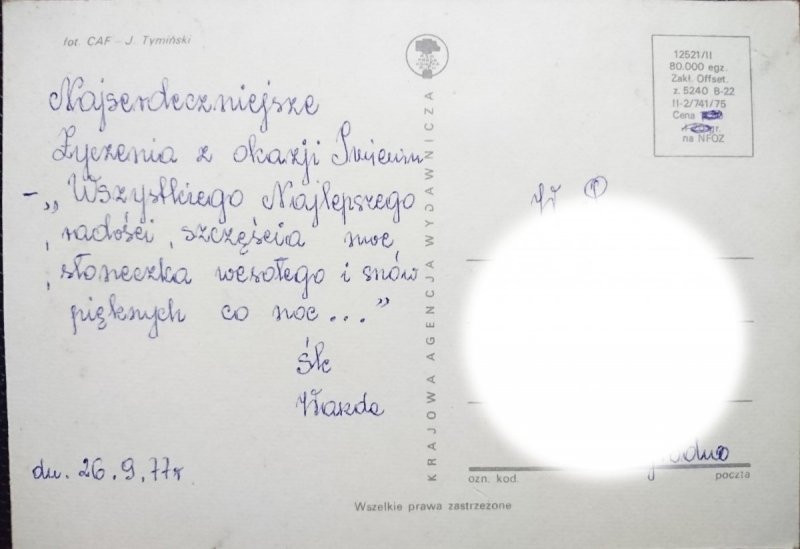 fot. CAF – J. Tymiński
Najserdeczniejsze
Życzenia z okazji Imienin
– „Wszystkiego Najlepszego
, radości, szczęścia moc
, słoneczka wesołego i snów
pięknych co noc..."
dn. 26.9.77r
KRAJOWA AGENCJA WYDAWNICZA
12521/II
80.000 egz.
Zakł. Offset.
z. 5240 B-22
II-2/741/75
Cena
gr.
na NFOZ
ozn. kod.
poczta
Wszelkie prawa zastrzeżone